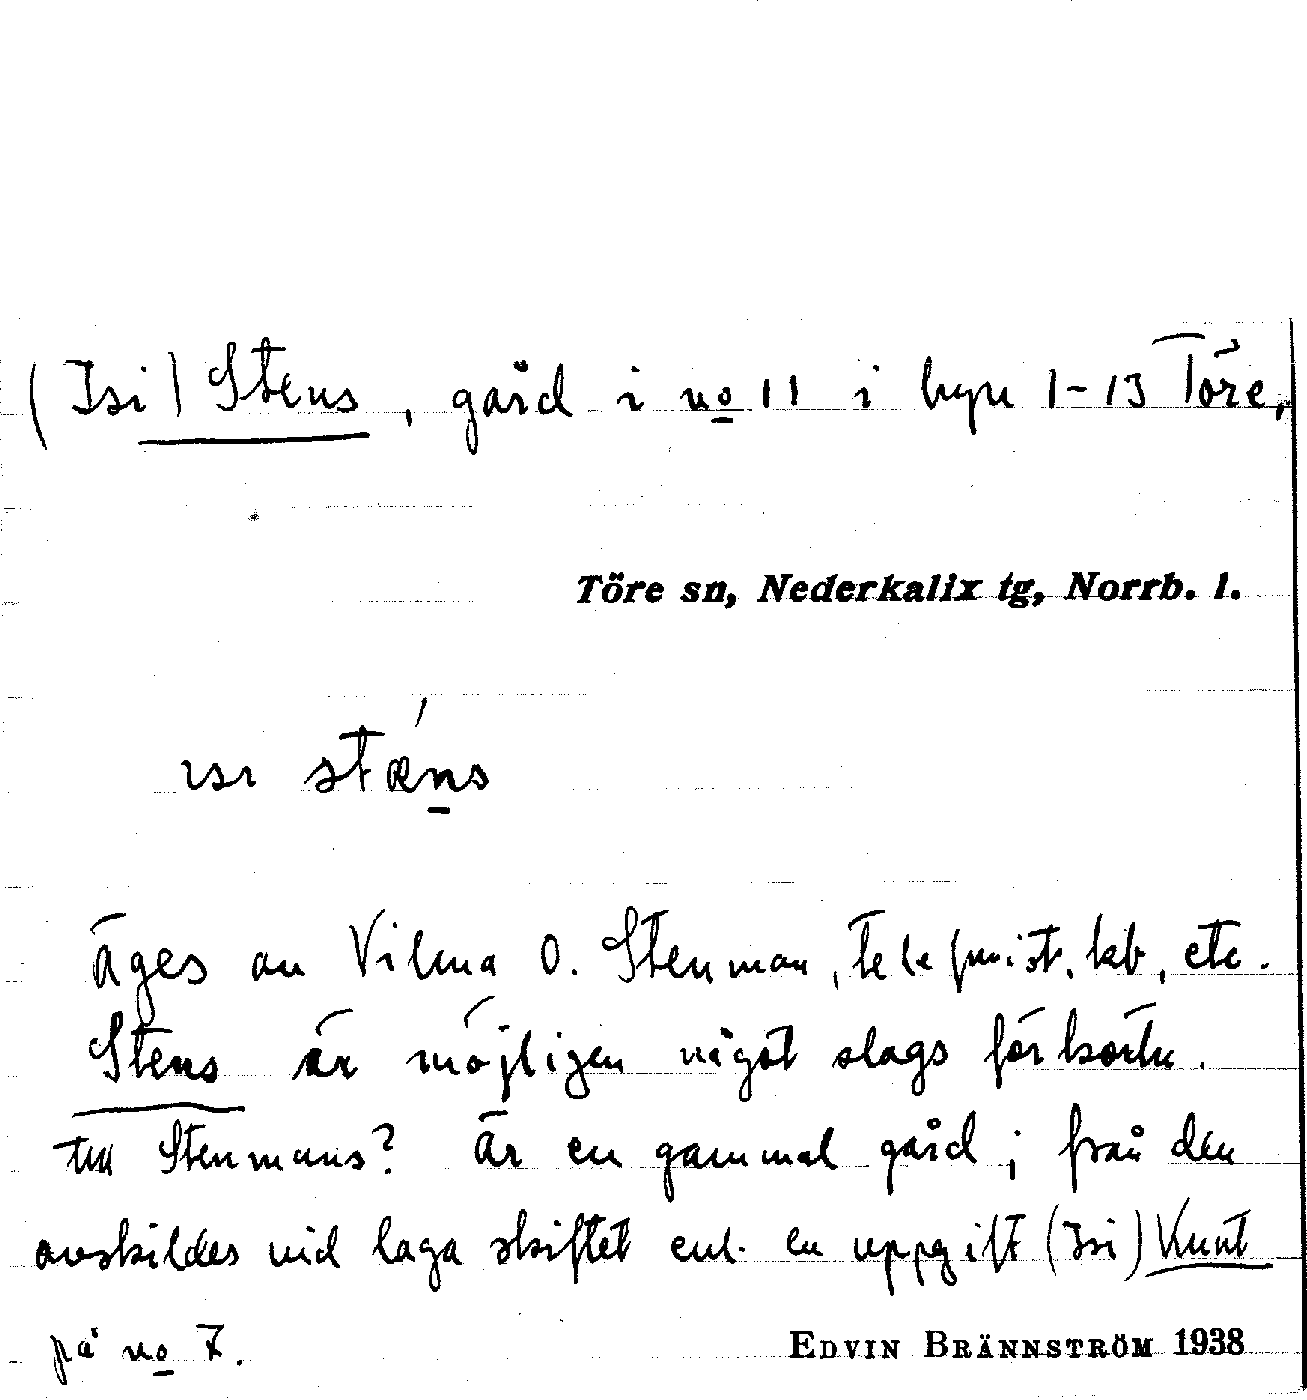 (Isi) Stens, gård i no 11 i byn 1-13 Töre,
Töre sn, Nederkalix tg, Norrb. l.
ısı stæ´ns
äges av Vilma O. Stenman, telefonist, kb, etc.
Stens är möjligen något slags förkortn.
till Stenmans? Är en gammal gård; från den
avskildes vid laga skiftet enl. en uppgift (Isi) Kunt
på no 7.
EDVIN BRÄNNSTRÖM 1938